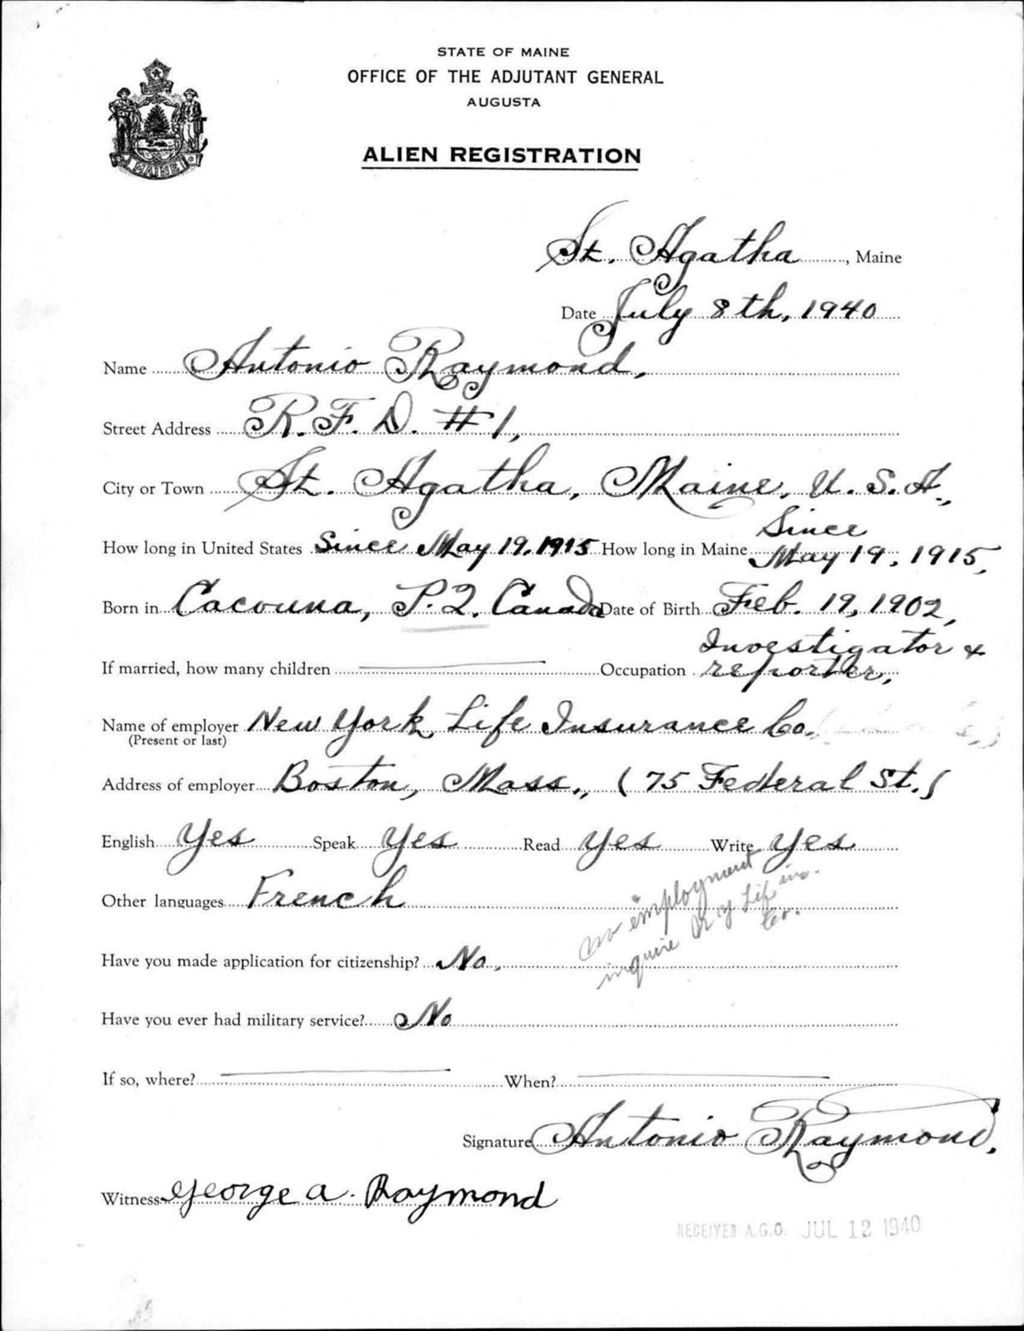 STATE OF MAINE
OFFICE OF THE ADJUTANT GENERAL
AUGUSTA
ALIEN REGISTRATION
MAINE
St. Agatha, Maine
Date July 8th, 1940
Name Antonio Raymond,
Street Address R.F.D. #1,
City or Town St. Agatha, Maine, U.S.A.,
How long in United States Since May 19, 1915 How long in Maine Since May 19, 1915,
Born in Cacouna, P.Q. Canada Date of Birth Feb. 19, 1902,
If married, how many children Occupation Investigator & reporter,
Name of employer New York Life Insurance Co.
(Present or last)
Address of employer Boston, Mass., (75 Federal St.)
English Yes Speak Yes Read Yes Write Yes
Other languages French
no employment
inquire N Y Life ins. Co.
Have you made application for citizenship? No,
Have you ever had military service? No
If so, where? When?
Signature Antonio Raymond,
Witness George A. Raymond
RECEIVED A.G.O. JUL 12 1940